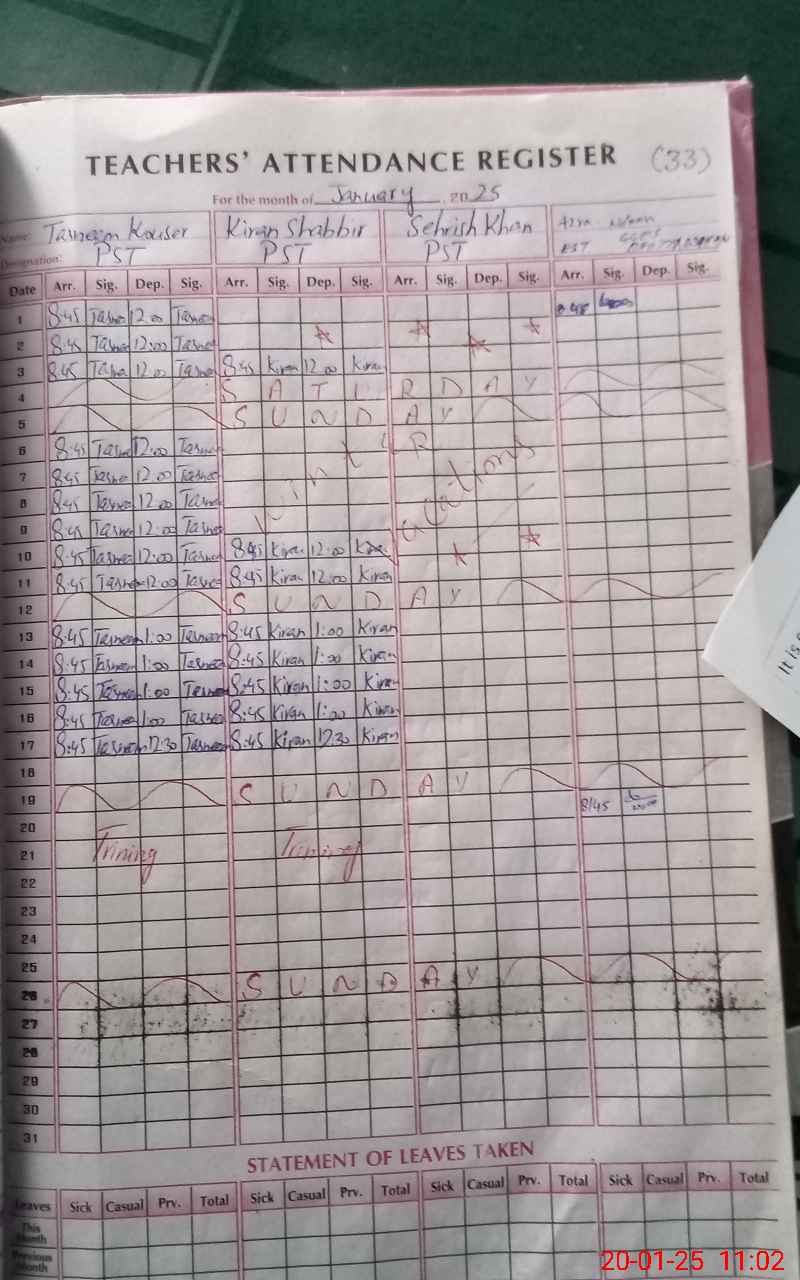 TEACHERS' ATTENDANCE REGISTER (33)
For the month of January, 2025
Name: Tasneem Kouser Kiran Shabbir Sehrish Khan
Designation: PST PST PST
Date Arr. Sig. Dep. Sig. Arr. Sig. Dep. Sig. Arr. Sig. Dep. Sig. Arr. Sig. Dep. Sig.
1 8:45 Tasne 12:00 Tasne 8:45
2 8:45 Tasne 12:00 Tasne
3 8:45 Tasne 12:00 Tasne 8:45 Kiran 12:00 Kiran
4 SATURDAY
5 SUNDAY
6 8:45 Tasne 12:00 Tasne
7 8:45 Tasne 12:00 Tasne
8 8:45 Tasne 12:00 Tasne
Winter Vacations
9 8:45 Tasne 12:00 Tasne
10 8:45 Tasne 12:00 Tasne 8:45 Kiran 12:00 Kiran
11 8:45 Tasne 12:00 Tasne 8:45 Kiran 12:00 Kiran
12 SUNDAY
13 8:45 Tasneem 1:00 Tasneem 8:45 Kiran 1:00 Kiran
14 8:45 Tasneem 1:00 Tasneem 8:45 Kiran 1:00 Kiran
15 8:45 Tasneem 1:00 Tasneem 8:45 Kiran 1:00 Kiran
16 8:45 Tasneem 1:00 Tasneem 8:45 Kiran 1:00 Kiran
17 8:45 Tasneem 12:30 Tasneem 8:45 Kiran 12:30 Kiran
18
19 SUNDAY
20 8:45
21 Trining Trining
22
23
24
25
26 SUNDAY
27
28
29
30
31
STATEMENT OF LEAVES TAKEN
Leaves Sick Casual Prv. Total Sick Casual Prv. Total Sick Casual Prv. Total Sick Casual Prv. Total
This Month
Previous Month
It is
20-01-25 11:02